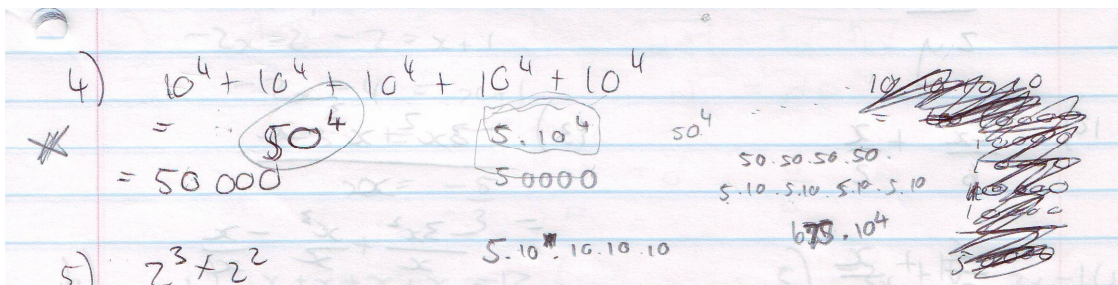 4) 10⁴ + 10⁴ + 10⁴ + 10⁴ + 10⁴
= 50⁴ 5.10⁴ 50⁴
= 50 000 50000
50.50.50.50.
5.10.5.10.5.10.5.10
5.10.10.10.10
5) 2³ + 2²